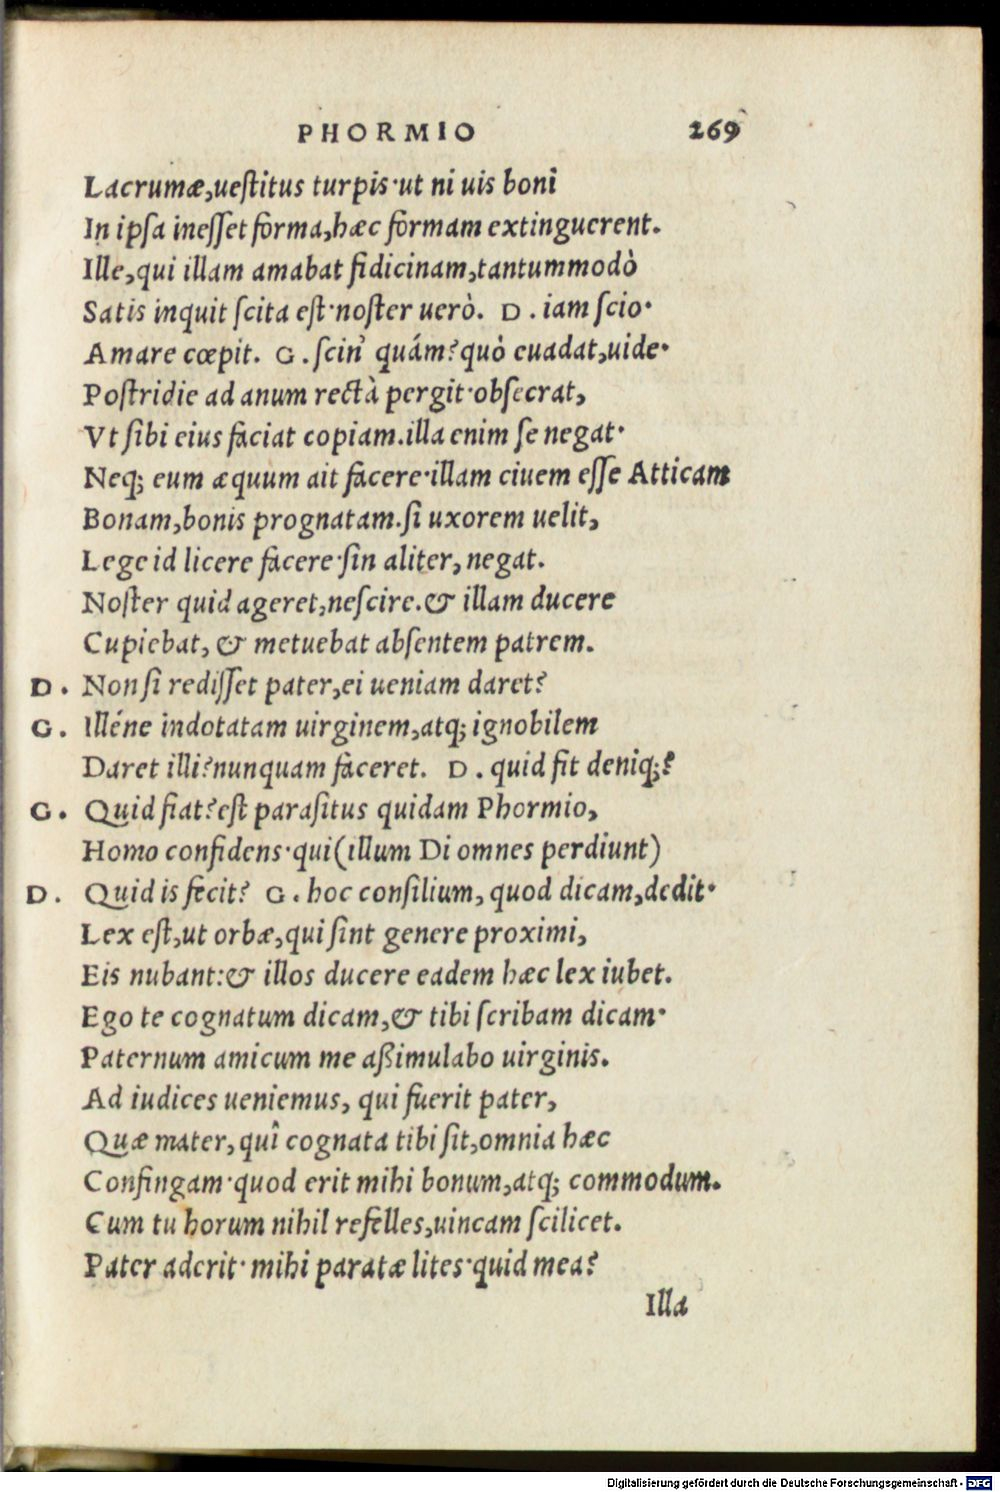 PHORMIO 269
Lacrumæ,ueſtitus turpis·ut ni uis boni
In ipſa ineſſet forma,hæc formam extinguerent.
Ille,qui illam amabat fidicinam,tantummodò
Satis inquit ſcita eſt·noſter uerò. D. iam ſcio·
Amare cœpit. G. ſcin' quám?quò euadat,uide·
Poſtridie ad anum rectà pergit·obſecrat,
Vt ſibi eius faciat copiam.illa enim ſe negat·
Neq; eum æquum ait facere·illam ciuem eſſe Atticam
Bonam,bonis prognatam.ſi uxorem uelit,
Lege id licere facere·ſin aliter, negat.
Noſter quid ageret,neſcire.& illam ducere
Cupiebat, & metuebat abſentem patrem.
D. Non ſi rediſſet pater,ei ueniam daret?
G. Illéne indotatam uirginem,atq; ignobilem
Daret illi?nunquam faceret. D. quid fit deniq;?
G. Quid fiat?eſt paraſitus quidam Phormio,
Homo confidens·qui(illum Di omnes perdiunt)
D. Quid is fecit? G. hoc conſilium, quod dicam,dedit·
Lex eſt,ut orbæ,qui ſint genere proximi,
Eis nubant:& illos ducere eadem hæc lex iubet.
Ego te cognatum dicam,& tibi ſcribam dicam·
Paternum amicum me aßimulabo uirginis.
Ad iudices ueniemus, qui fuerit pater,
Quæ mater, quî cognata tibi ſit,omnia hæc
Confingam·quod erit mihi bonum,atq; commodum.
Cum tu horum nihil refelles,uincam ſcilicet.
Pater aderit· mihi paratæ lites·quid mea?
Illa
Digitalisierung gefördert durch die Deutsche Forschungsgemeinschaft - DFG